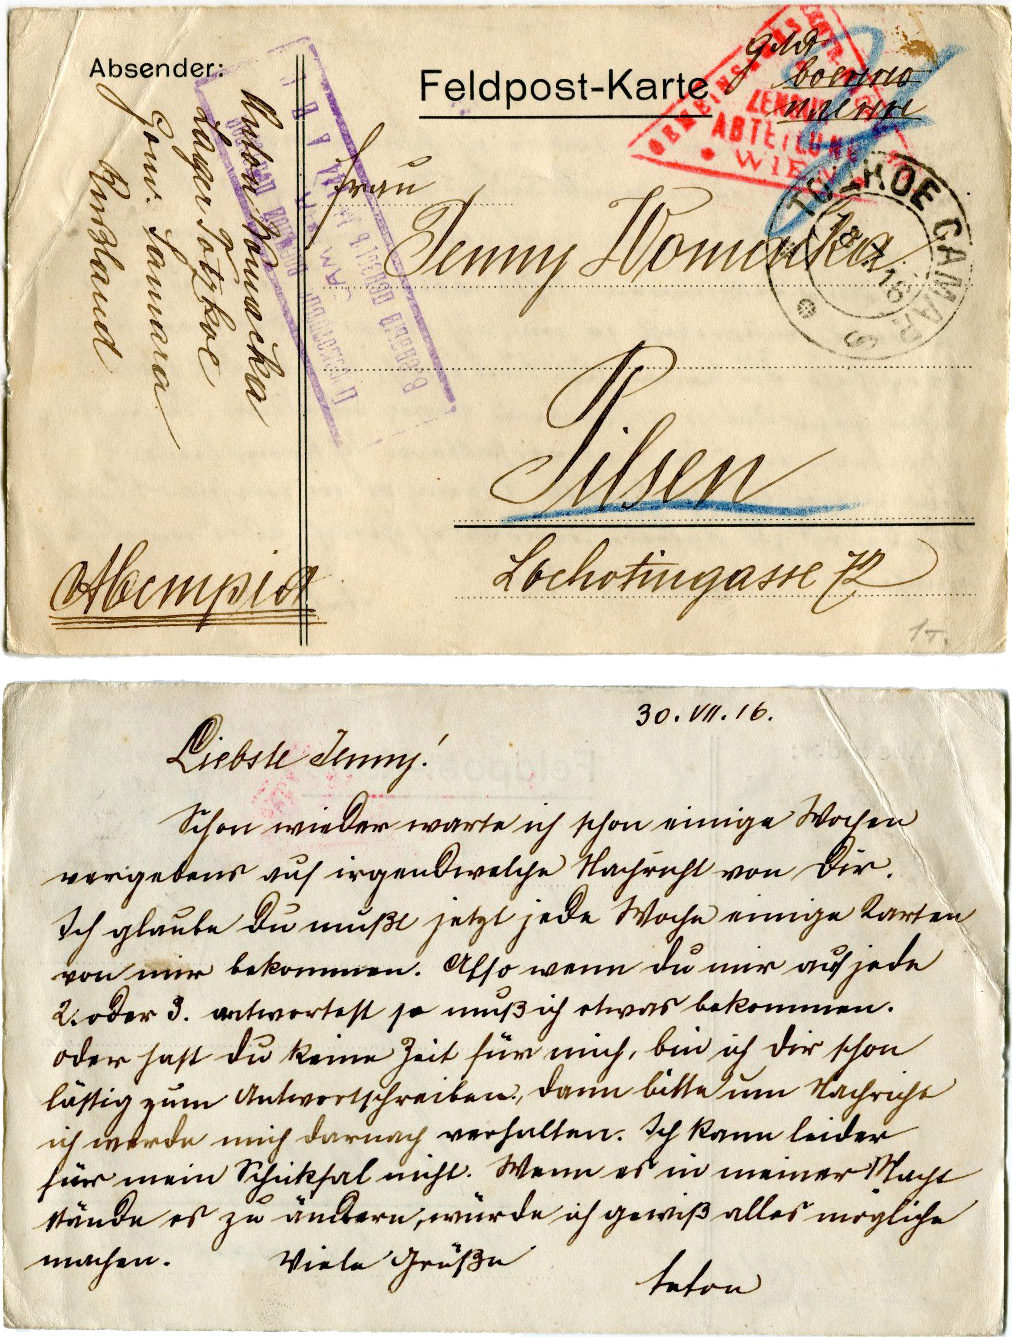 Absender:
Anton Womačka
Lager Totzkoe
Gouv. Samara
Rußland
Feldpost-Karte
Для
военно
пленн
ZENSUR
ABTEILUNG
WIEN
Frau
Jenny Womačka
ТОЦКОЕ САМАР.
18 7 16
Pilsen
Lochotingasse 72
1т.
30. VII. 16.
Liebste Jenny!
Schon wieder warte ich schon einige Wochen
vergebens auf irgendwelche Nachricht von Dir.
Ich glaube Du mußt jetzt jede Woche einige Karten
von mir bekommen. Also wenn du mir auf jede
2. oder 3. antwortest so muß ich etwas bekommen.
Oder hast du keine Zeit für mich, bin ich Dir schon
lästig zum Antwortschreiben, dann bitte um Nachricht
ich werde mich darnach verhalten. Ich kann leider
für mein Schiksal nicht. Wenn es in meiner Macht
stände es zu ändern, würde ich gewiß alles mögliche
machen. Viele Grüße